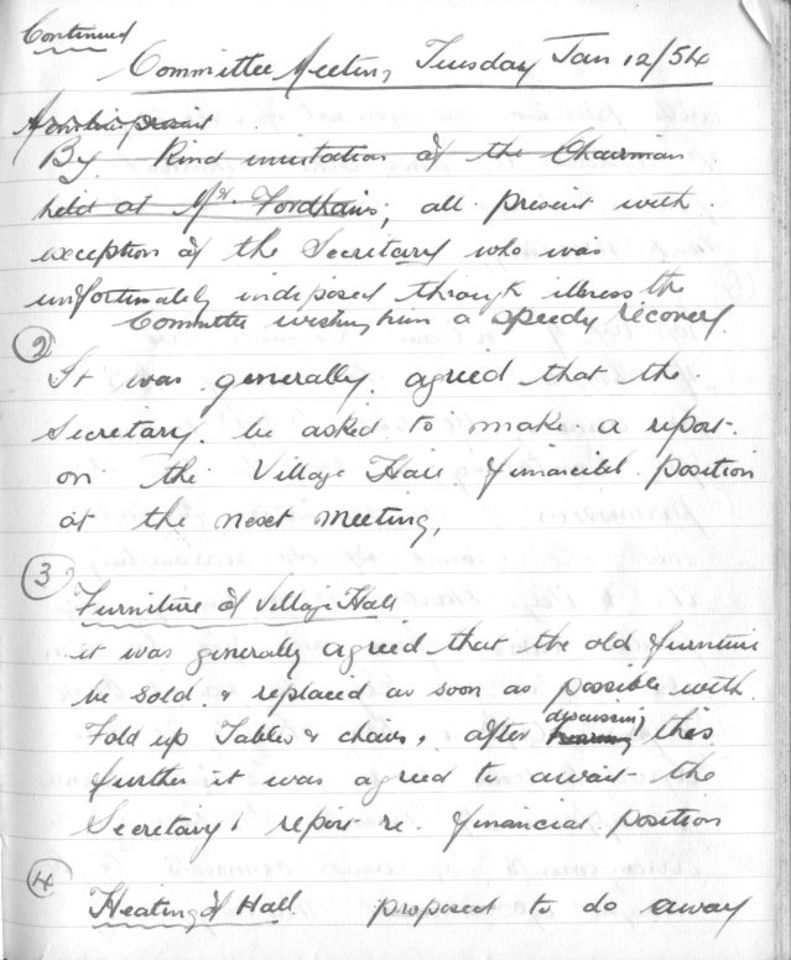 Continued
Committee Meeting Tuesday Jan 12/54
present
By Kind invitation of the Chairman
held at Mr. Fordhams, all present with
exception of the Secretary who was
unfortunately indiposed through illness the
Committee wishing him a speedy recovery.
2
It was generally agreed that the
Secretary be asked to make a report
on the Village Hall financial position
at the next meeting,
3
Furniture of Village Hall
it was generally agreed that the old furniture
be sold & replaced as soon as possible with
discussing
Fold up Tables & chairs, after hearing this
further it was agreed to await the
Secretary's report re. financial position
4
Heating of Hall proposed to do away